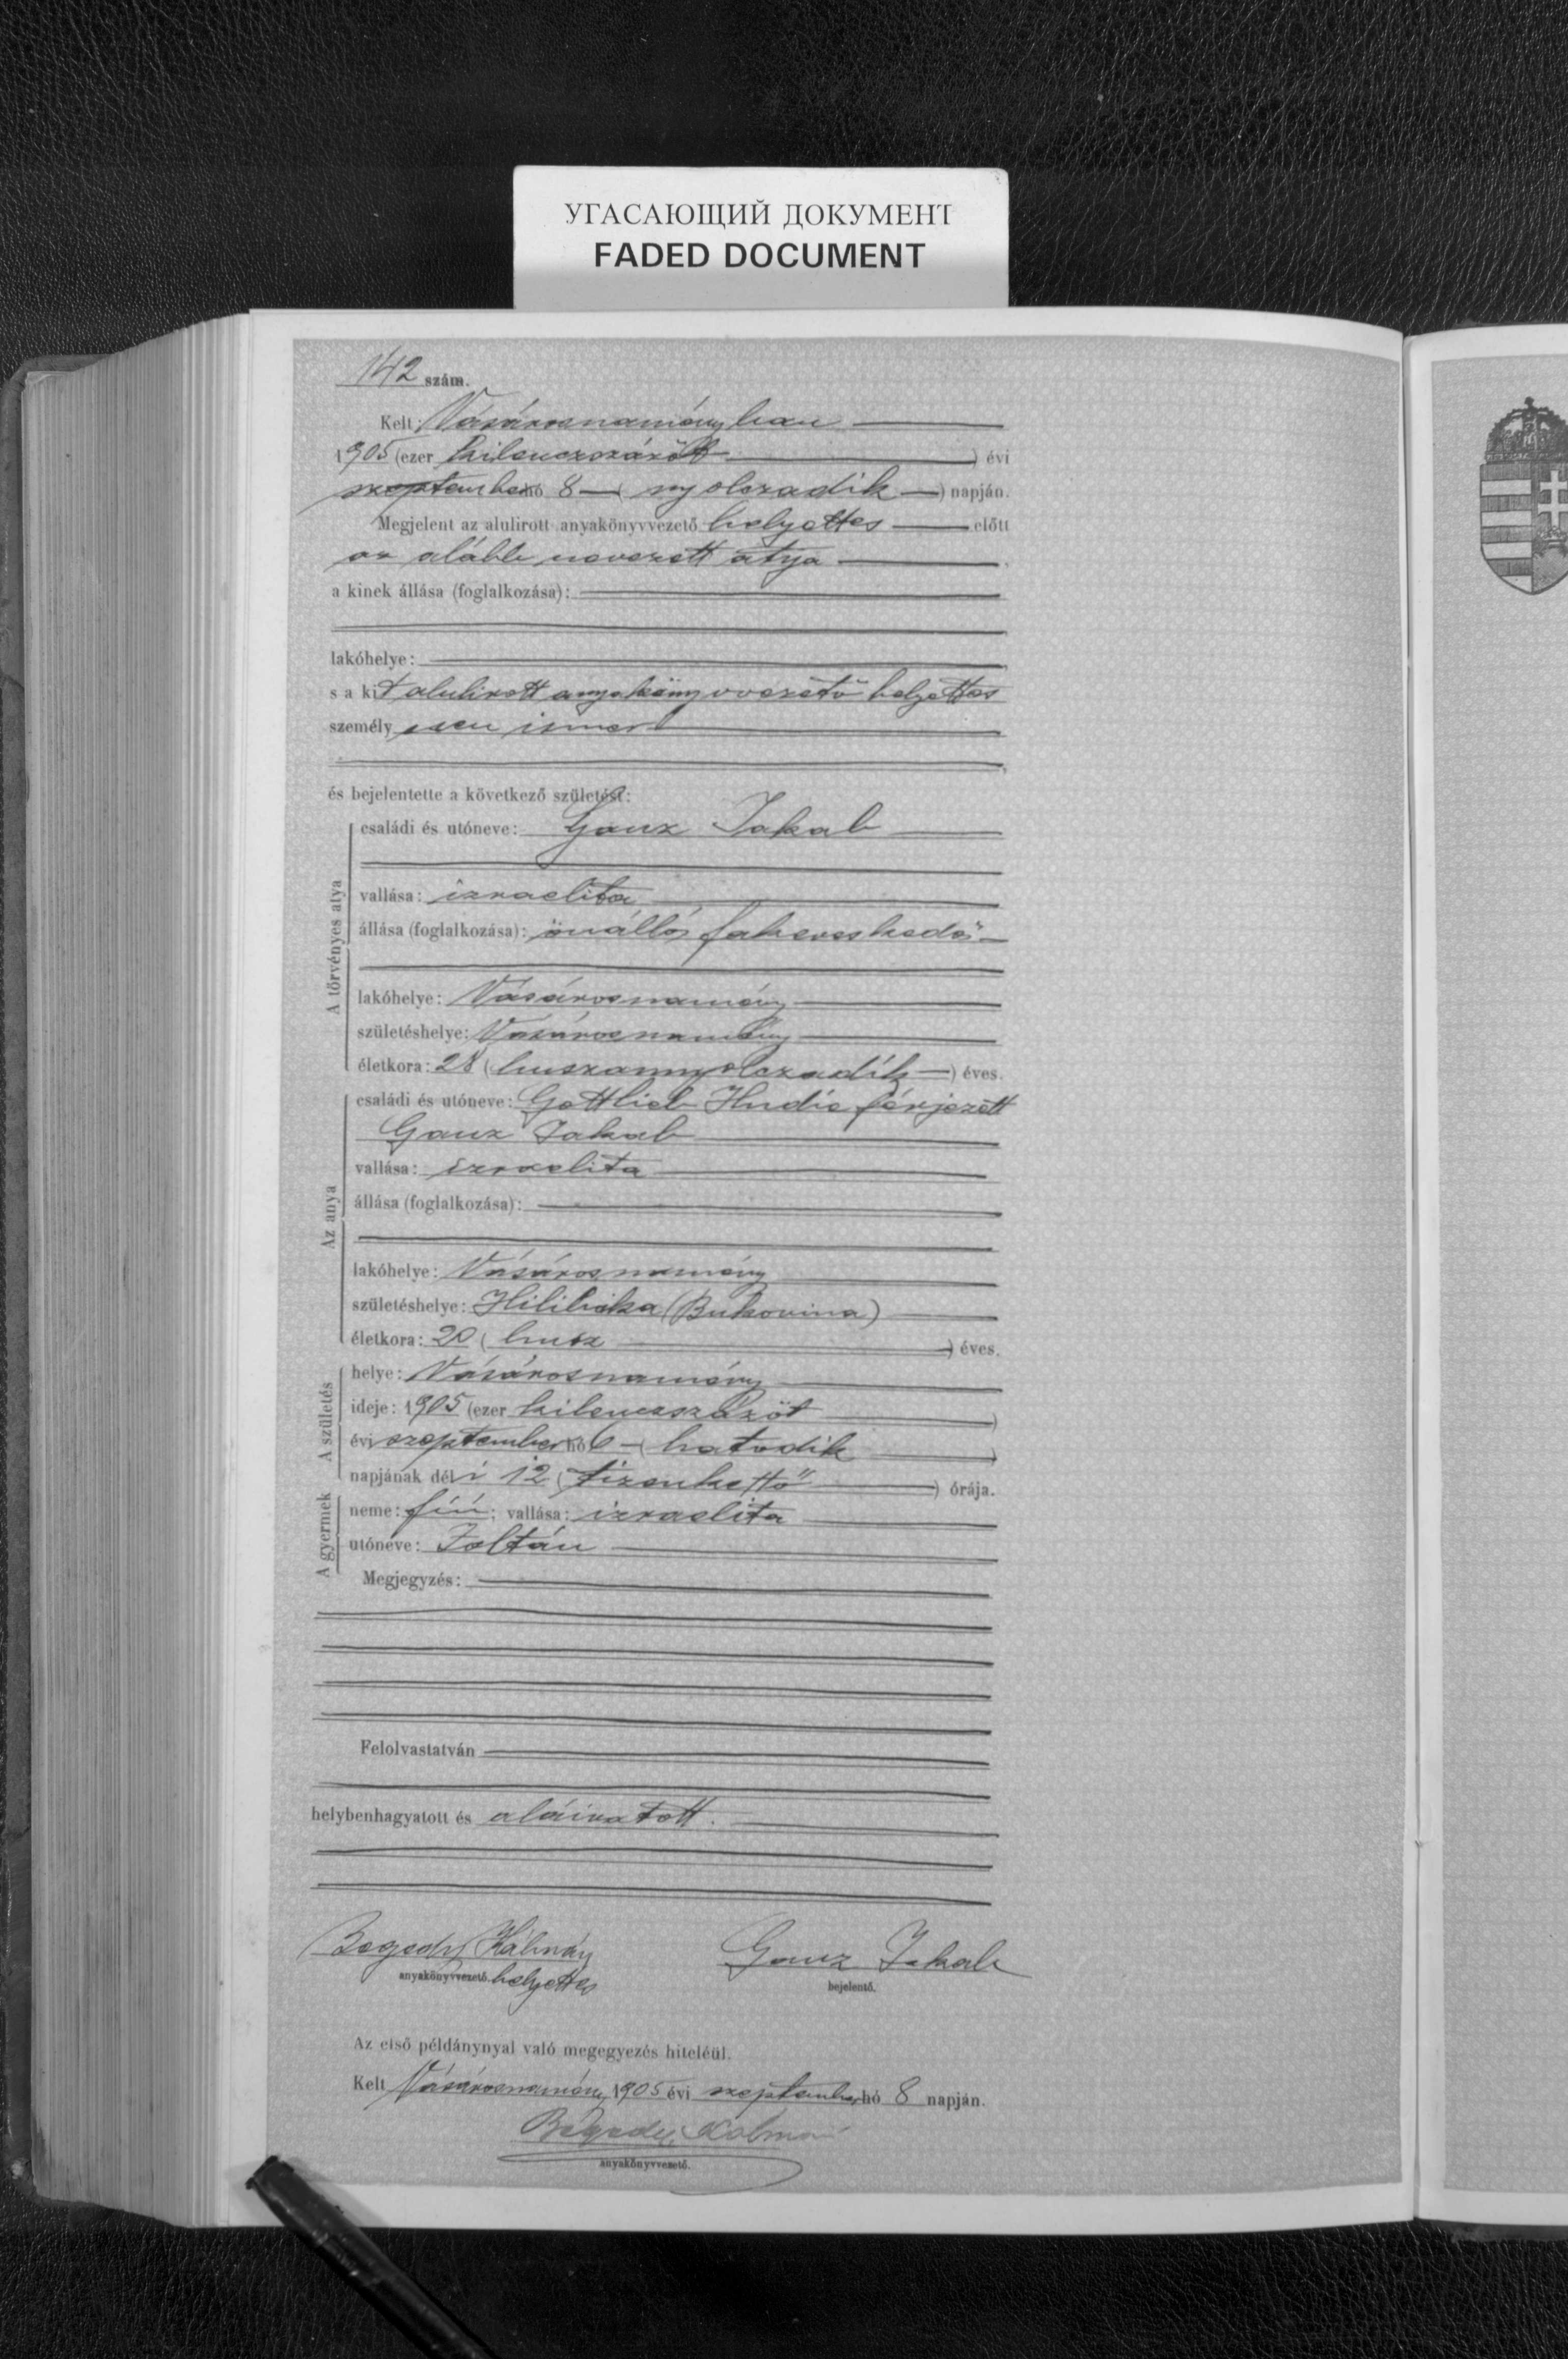 УГАСАЮЩИЙ ДОКУМЕНТ
FADED DOCUMENT
142 szám.
Kelt: Vásárosnaményban
1905 (ezer kilenczszázöt) évi
szeptember hó 8 (nyolczadik) napján.
Megjelent az alulirott anyakönyvvezető helyettes előtt
az alább nevezett atya
a kinek állása (foglalkozása):
lakóhelye:
s a kit alulirott anyakönyvvezető helyettes
személyesen ismer
és bejelentette a következő születést:
A törvényes atya
családi és utóneve: Ganz Jakab
vallása: izraelita
állása (foglalkozása): önálló fakereskedő
lakóhelye: Vásárosnamény
születéshelye: Vásárosnamény
életkora: 28 (huszannyolczadik) éves.
Az anya
családi és utóneve: Gottlieb Hudie férjezett
Ganz Jakab
vallása: izraelita
állása (foglalkozása):
lakóhelye: Vásárosnamény
születéshelye: (Bukovina)
életkora: 20 (husz) éves.
A születés
helye: Vásárosnamény
ideje: 1905 (ezer kilenczszázöt)
évi szeptember hó 6 (hatodik)
napjának déli 12 (tizenkettő) órája.
A gyermek
neme: fiú; vallása: izraelita
utóneve: Zoltán
Megjegyzés:
Felolvastatván
helybenhagyatott és aláiratott.
Bégedy Kálmán
Ganz Jakab
anyakönyvvezető helyettes
bejelentő.
Az első példánynyal való megegyezés hiteléül.
Kelt Vásárosnamény 1905 évi szeptember hó 8 napján.
Bégedy Kálmán
anyakönyvvezető.